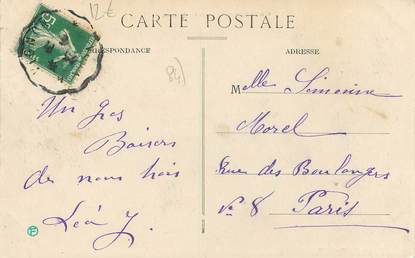 12€
CARTE POSTALE
CORRESPONDANCE
ADRESSE
84)
Un gros
Baisers
de nous trois
Léa J.
Melle Simonne
Morel
Rue des Boulangers
No 8 Paris